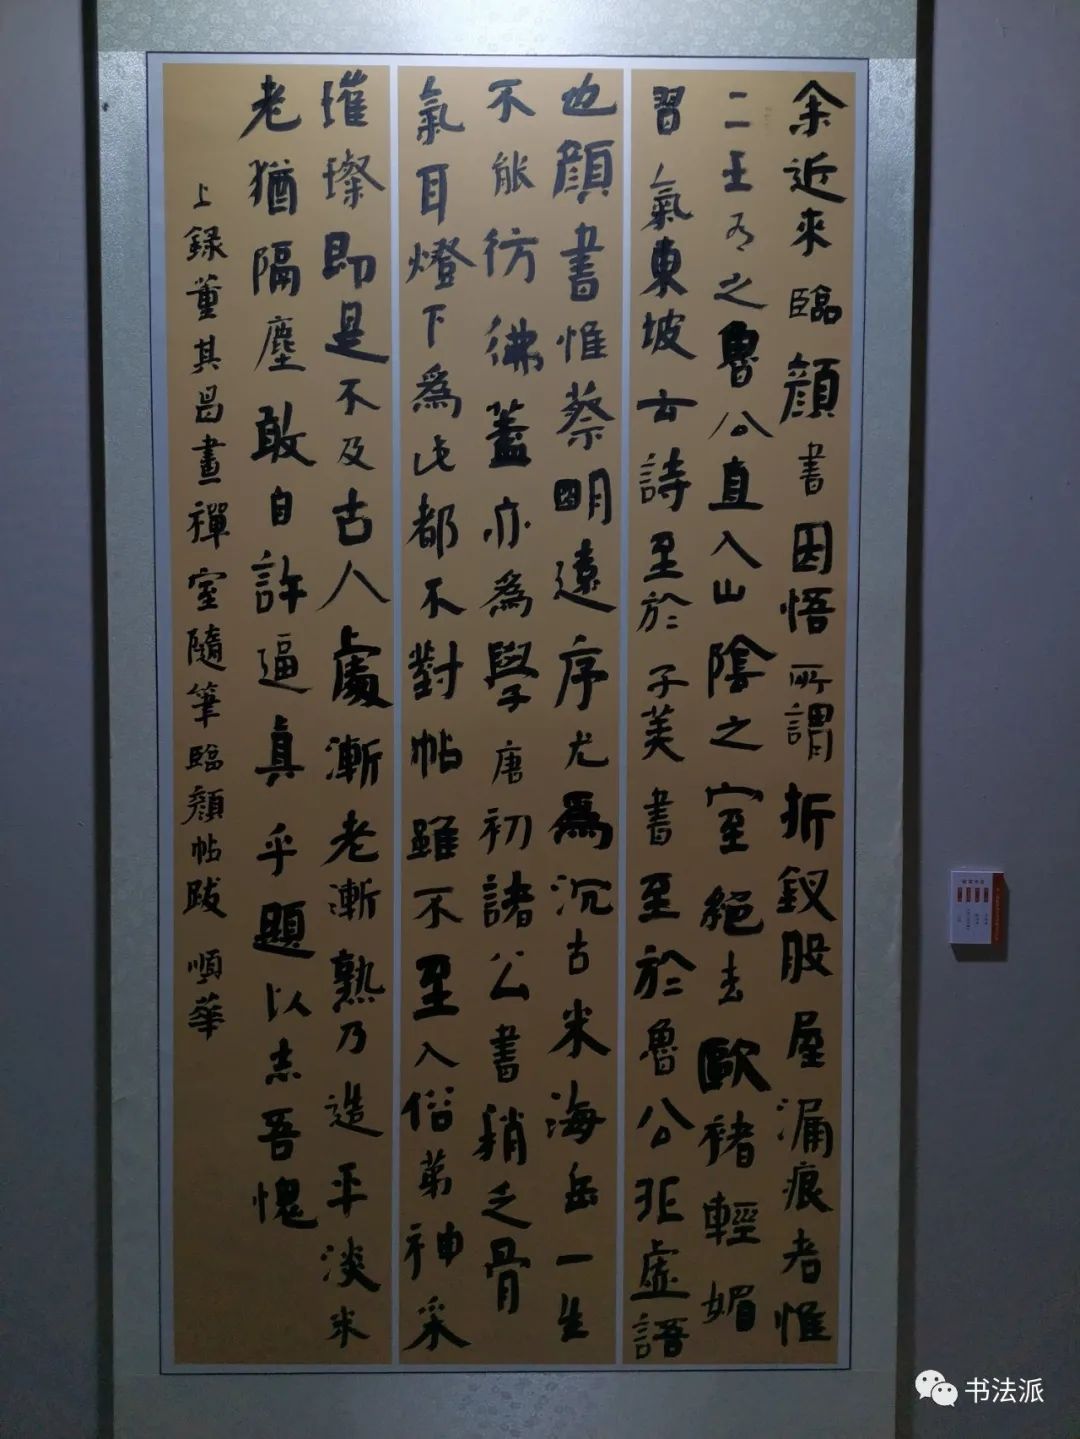 余近來臨顔書因悟所謂折釵股屋漏痕者惟
二王有之魯公直入山陰之室絕去歐褚輕媚
習氣東坡云詩至於子美書至於魯公非虛語
也顔書惟蔡明遠序尤爲沉古米海岳一生
不能彷彿蓋亦爲學唐初諸公書稍乏骨
氣耳燈下爲此都不對帖雖不至入俗第神采
璀璨即是不及古人處漸老漸熟乃造平淡米
老猶隔塵敢自許逼真乎題以志吾愧
上録董其昌畫禪室隨筆臨顔帖跋 順華
书法派